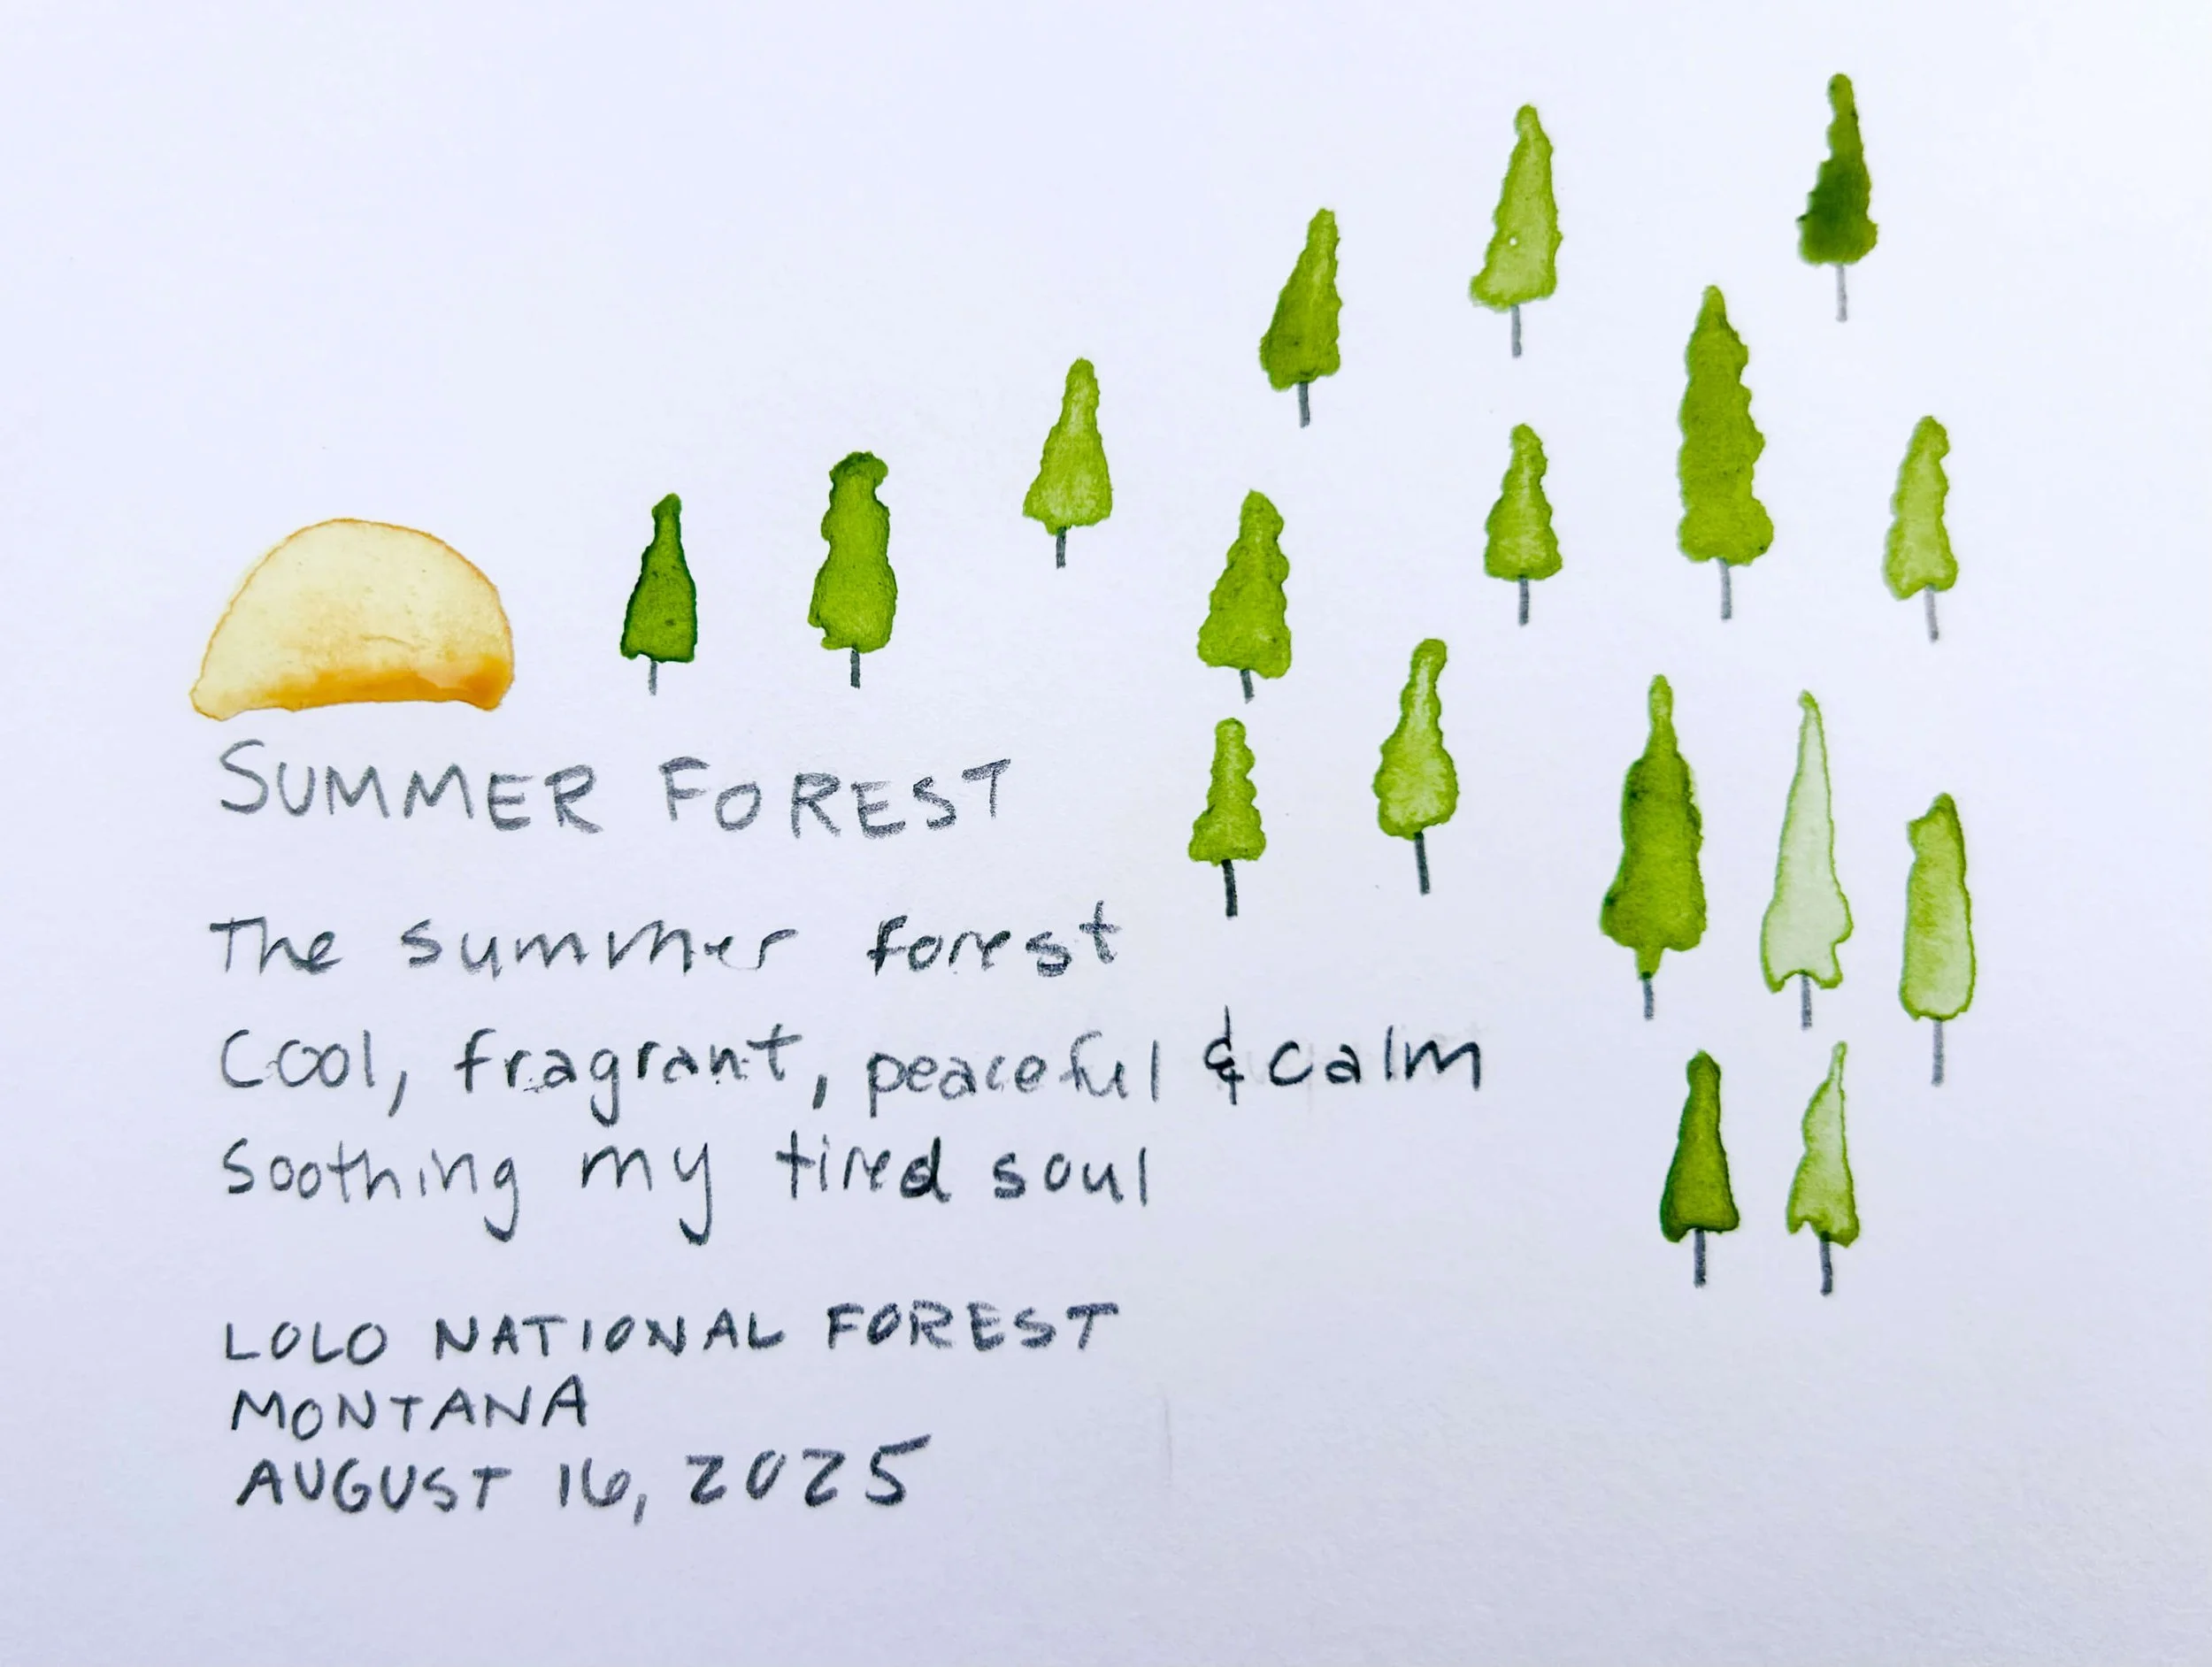 SUMMER FOREST
The summer forest
Cool, fragrant, peaceful & calm
soothing my tired soul
LOLO NATIONAL FOREST
MONTANA
AUGUST 16, 2025